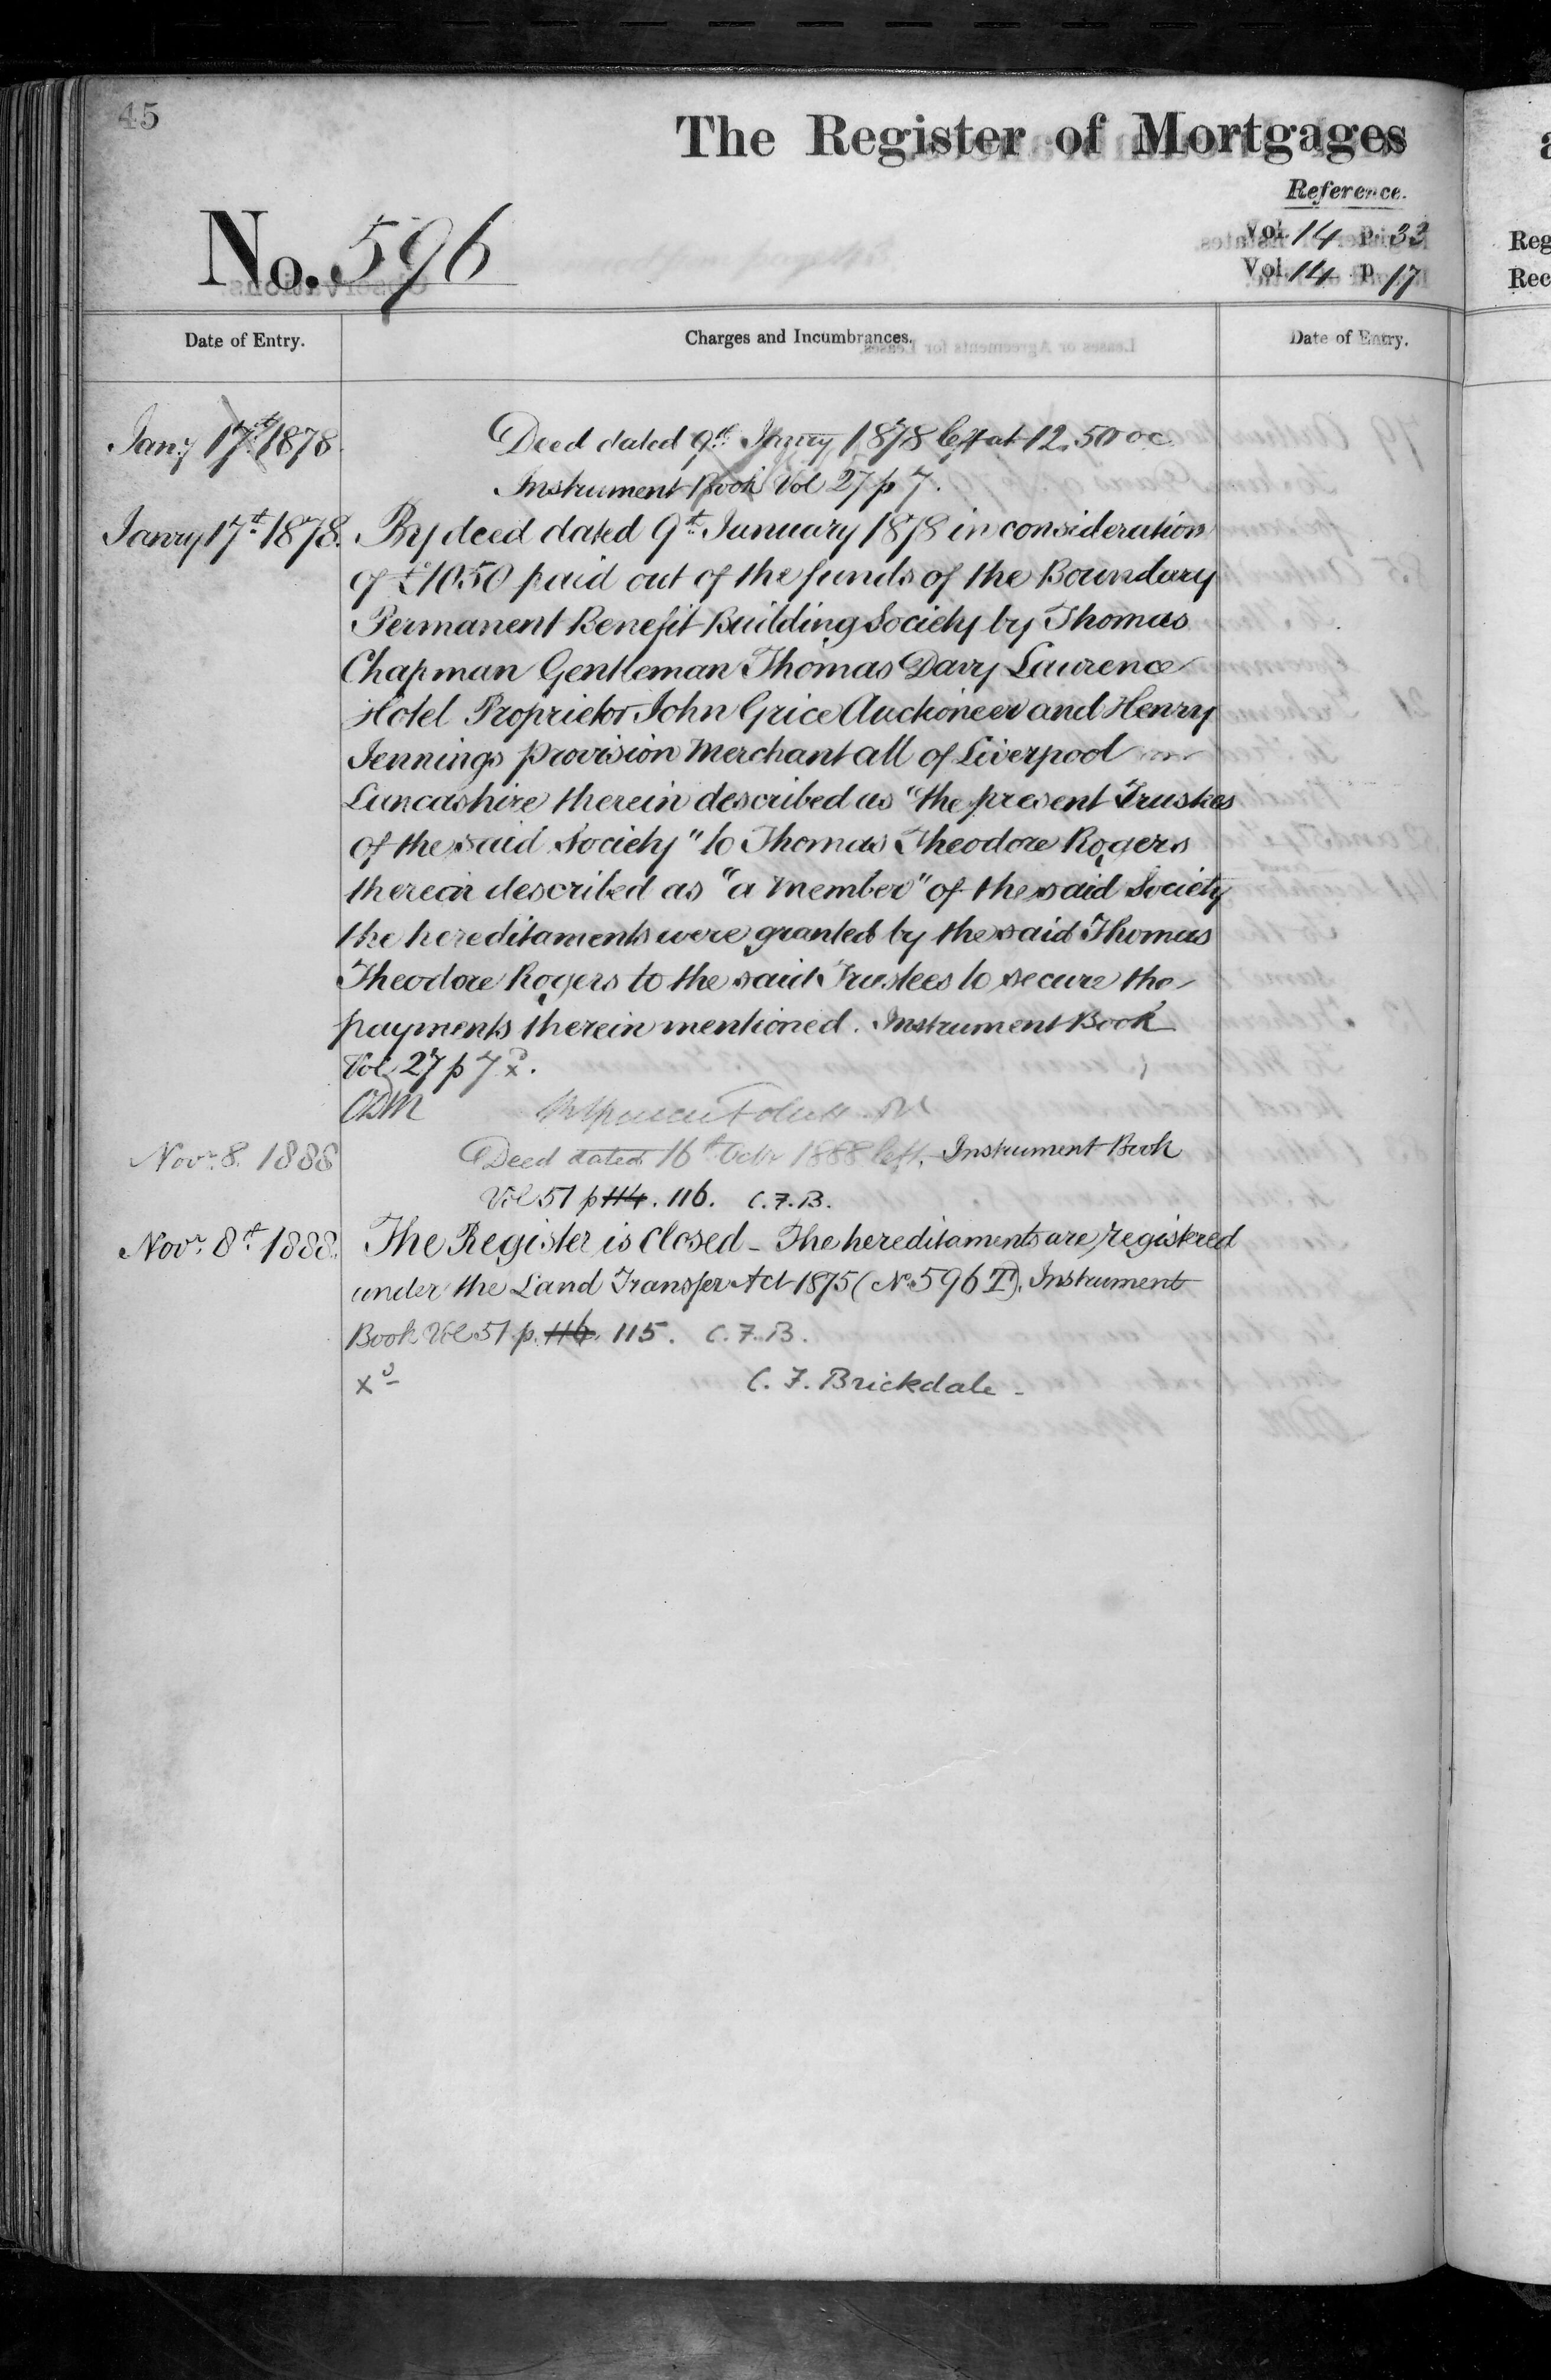 45
The Register of Mortgages
Reference.
No. 596
Vol. 14 p. 33
Vol. 14 p. 17
Date of Entry.
Charges and Incumbrances.
Date of Entry.
Jany 17th 1878.
Deed dated 9th Janry 1878 left at 12.50 oc
Instrument Book Vol 27 p 7.
Janry 17th 1878.
By deed dated 9th January 1878 in consideration
of £1050 paid out of the funds of the Boundary
Permanent Benefit Building Society by Thomas
Chapman Gentleman Thomas Davy Laurence
Hotel Proprietor John Grice Auctioneer and Henry
Jennings provision Merchant all of Liverpool
Lancashire therein described as "the present Trustees
of the said Society" to Thomas Theodore Rogers
therein described as "a member" of the said Society
the hereditaments were granted by the said Thomas
Theodore Rogers to the said Trustees to secure the
payments therein mentioned. Instrument Book
Vol 27 p 7
Novr. 8. 1888
Deed dated 16th Octr 1888 left. Instrument Book
Vol 51 p 114. 116. C.F.B.
Novr. 8th 1888.
The Register is Closed - The hereditaments are registered
under the Land Transfer Act 1875 (No. 596 T). Instrument
Book Vol 51 p. 116. 115. C.F.B.
C. F. Brickdale -
Reg
Rec